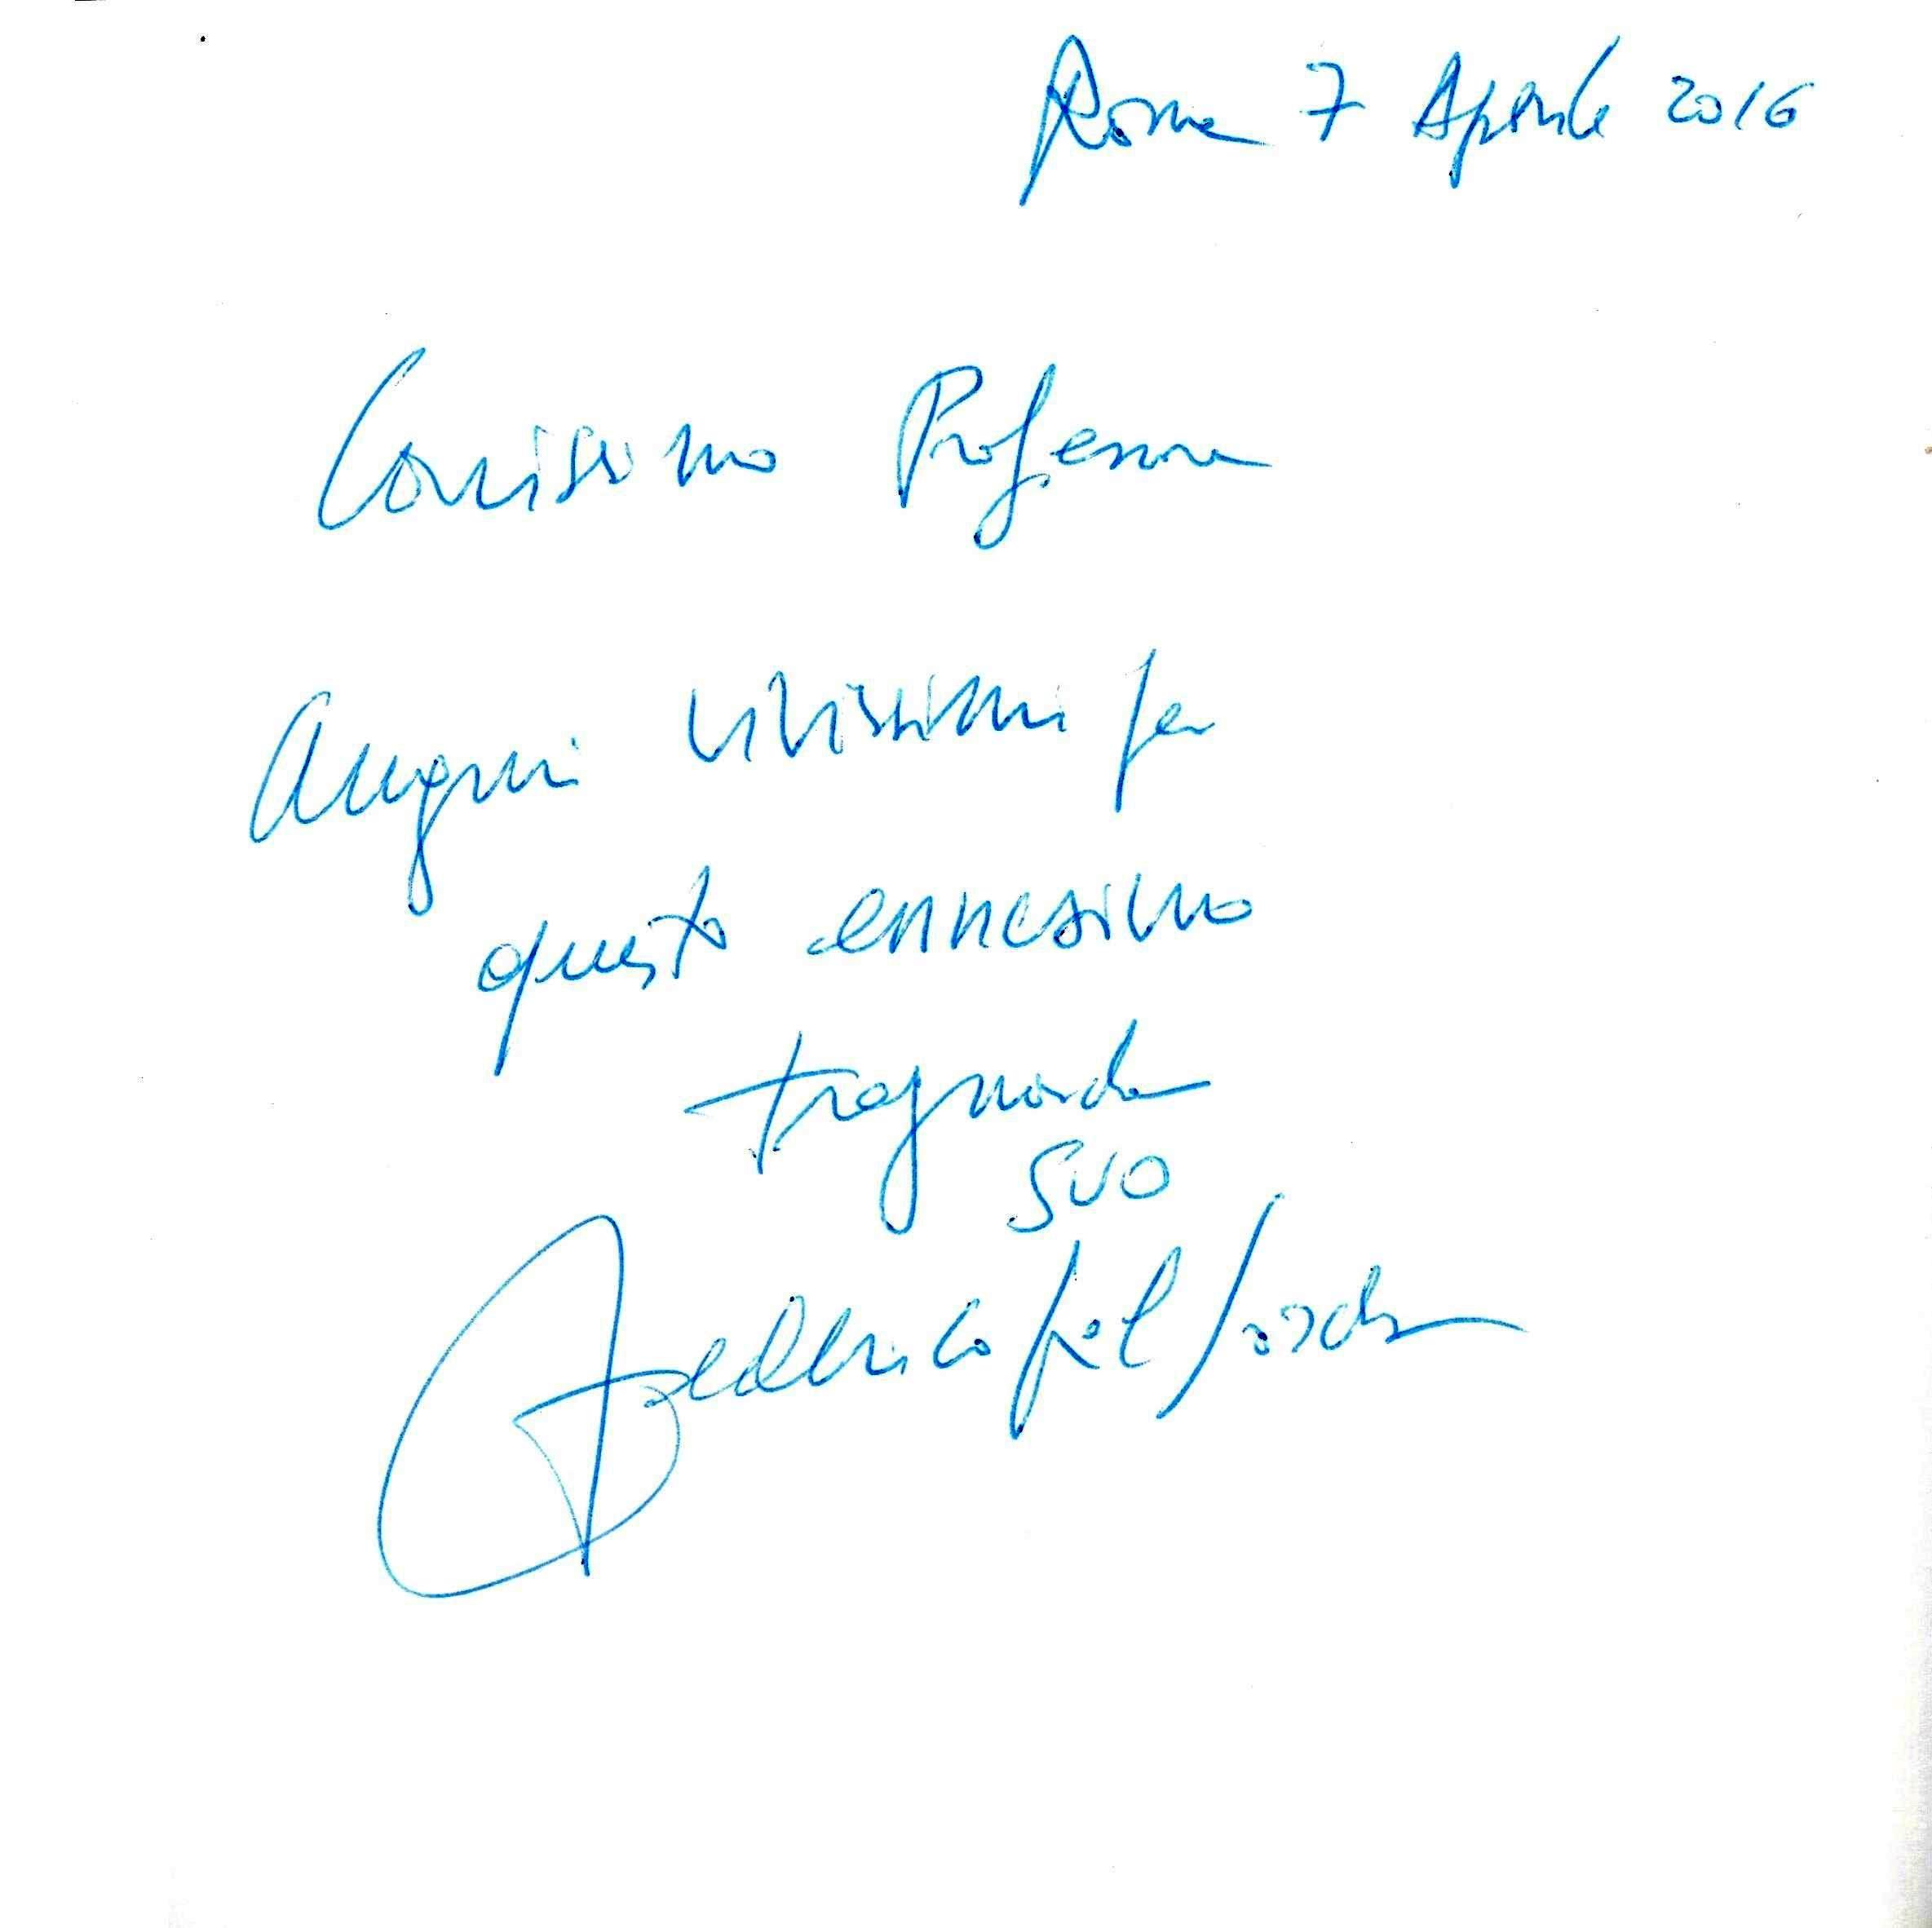 Roma 7 Aprile 2016
Carissimo Professore
Auguri vivissimi per
questo ennesimo
traguardo
SUO
Federico